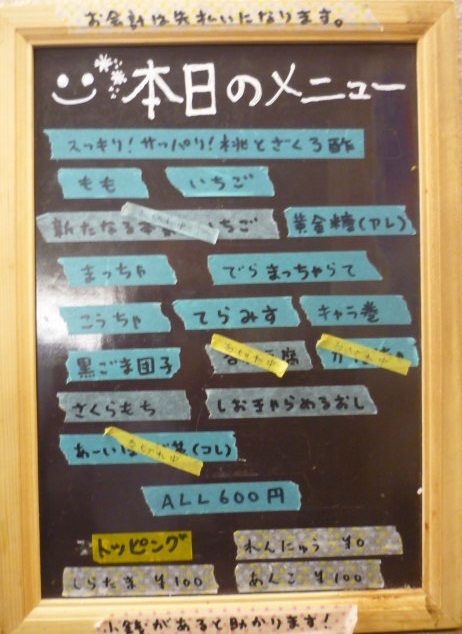 お会計は先払いになります。
本日のメニュー
スッキリ！サッパリ！桃とざくろ酢
もも いちご
新たなる いちご 黄金糖(アレ)
まっちゃ でらまっちゃらて
こうちゃ てらみす キャラ巻
黒ごま団子 腐
さくらもち しおきゃらめるおし
あーいえ (コレ)
ALL600円
トッピング れんにゅう ¥0
しらたま ¥100 あんこ ¥100
小銭があると助かります！